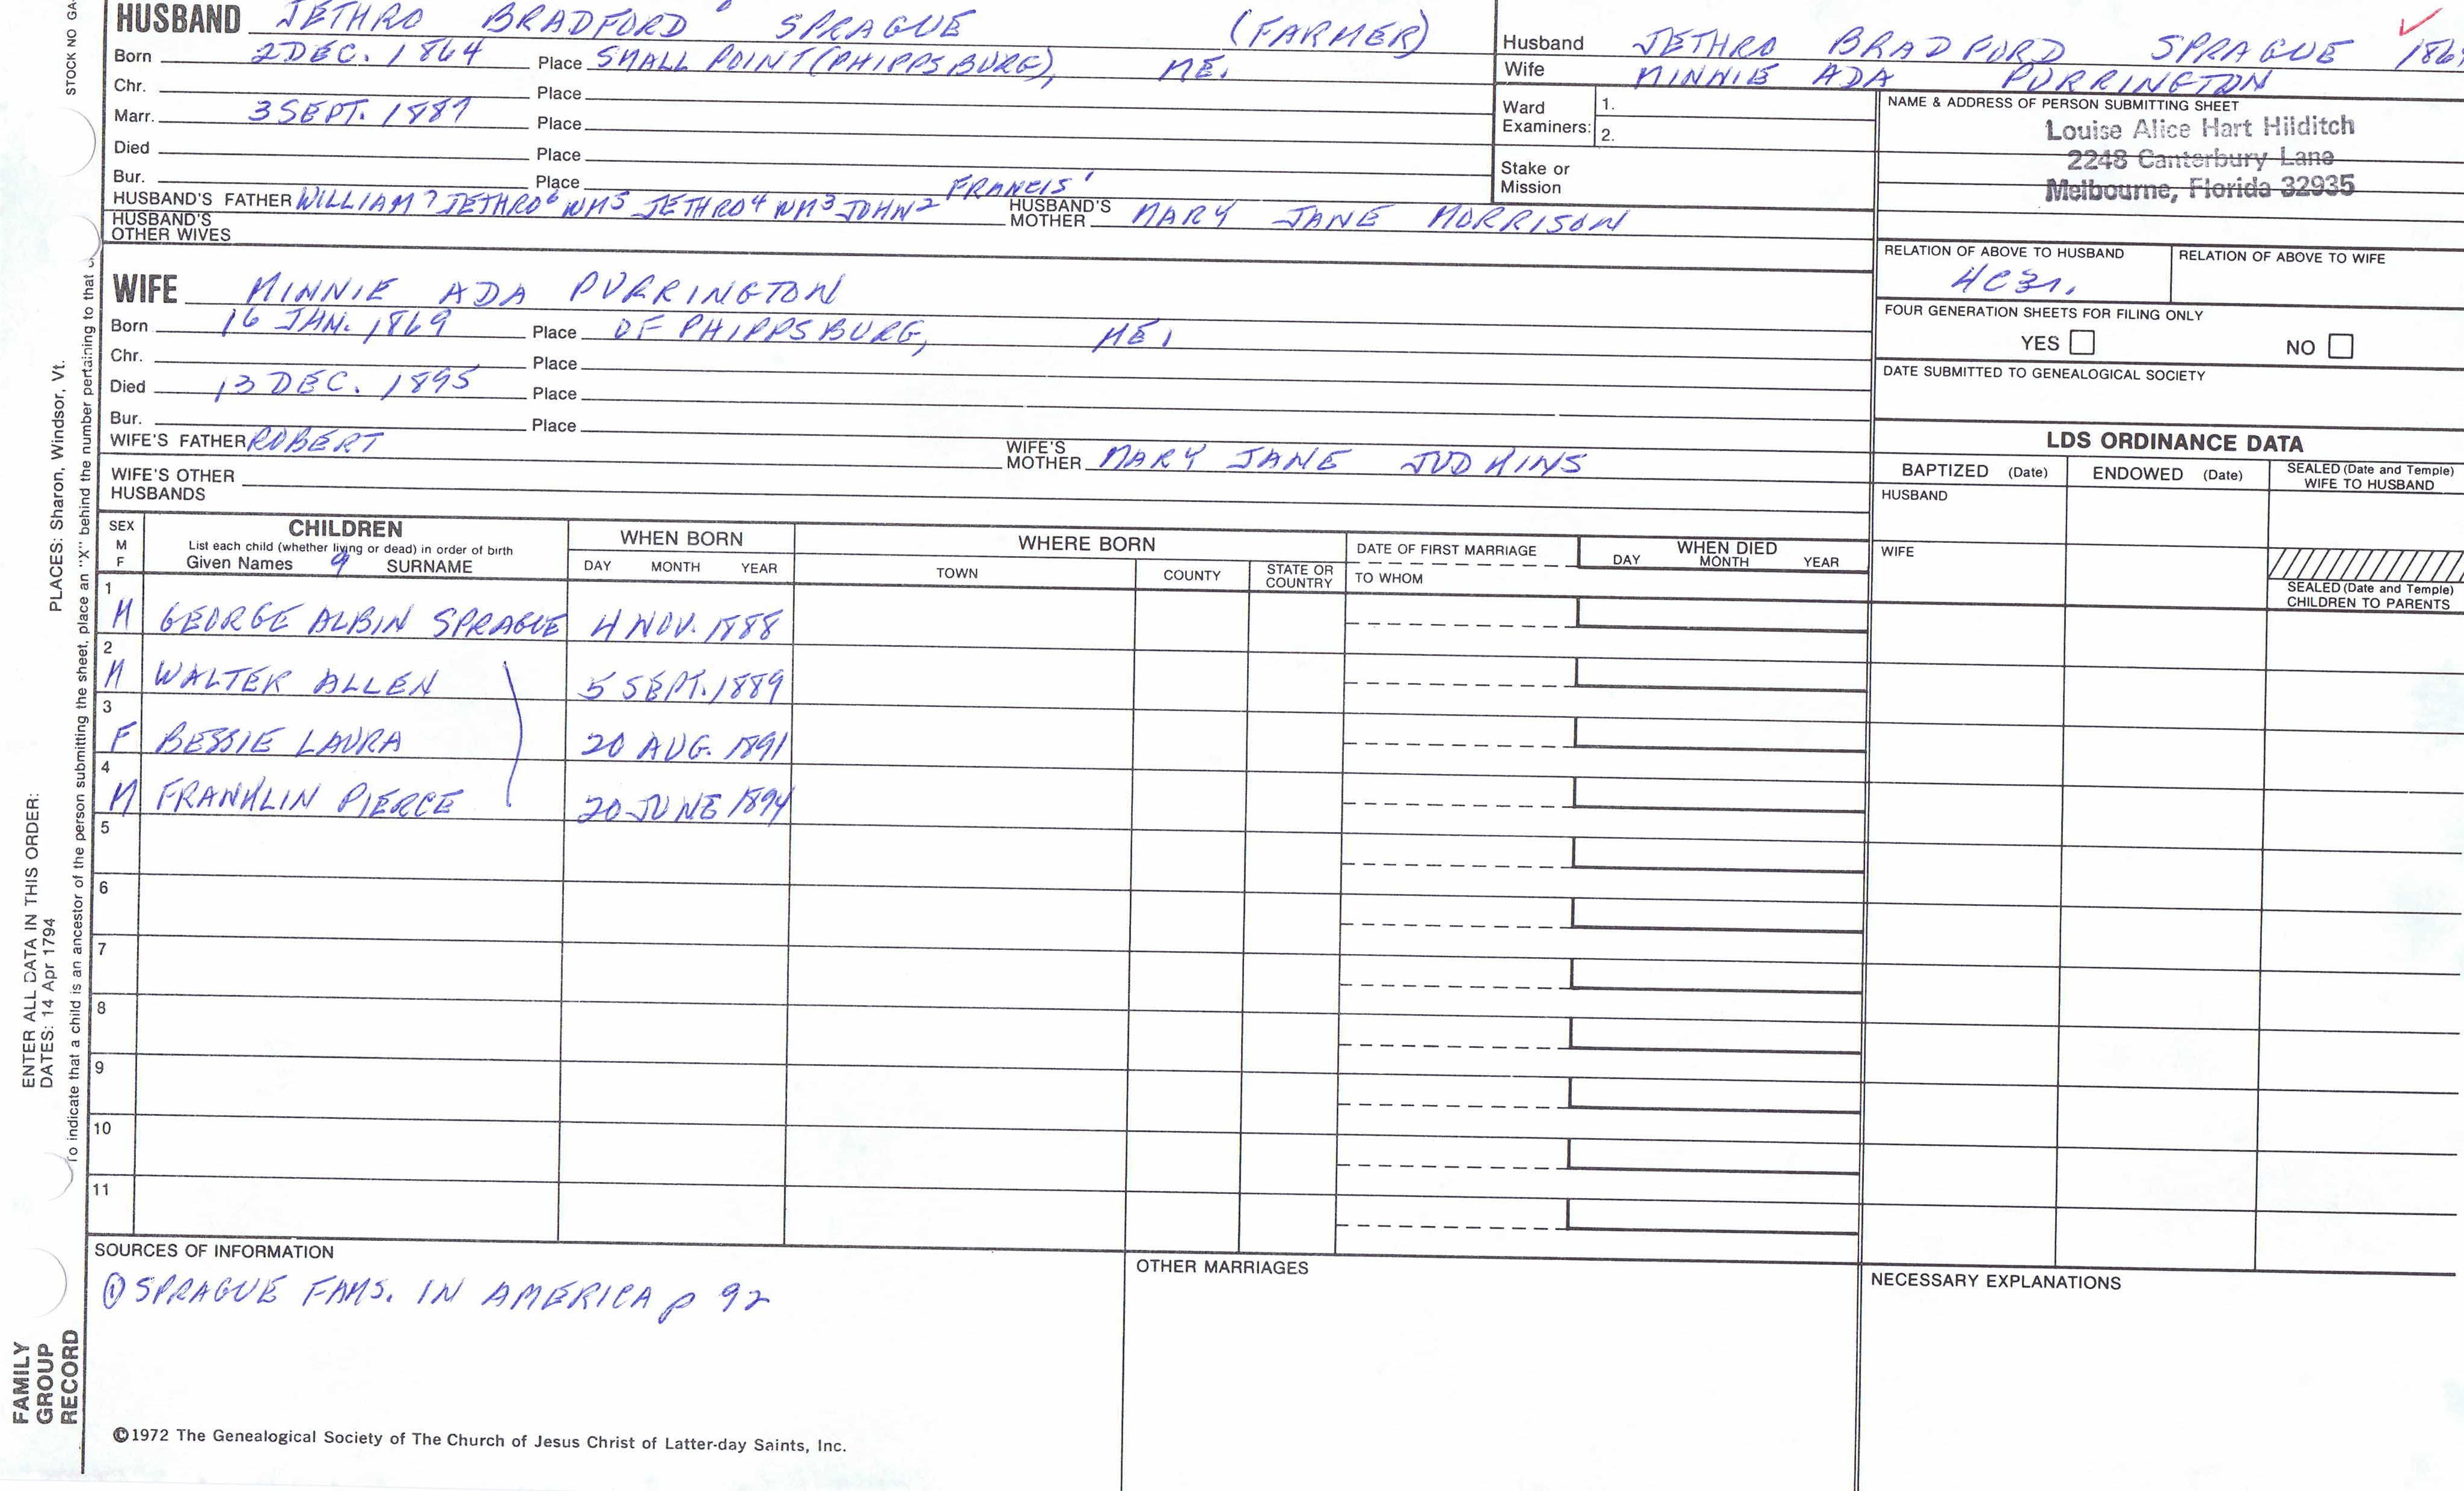 HUSBAND JETHRO BRADFORD SPRAGUE (FARMER)
Born 2 DEC. 1864 Place SMALL POINT (PHIPPSBURG), ME.
Chr. Place
Marr. 3 SEPT. 1887 Place
Died Place
Bur. Place
HUSBAND'S FATHER WILLIAM7 JETHRO6 WM5 JETHRO4 WM3 JOHN2 FRANCIS1 HUSBAND'S MOTHER MARY JANE MORRISON
HUSBAND'S OTHER WIVES
WIFE MINNIE ADA PURRINGTON
Born 16 JAN. 1869 Place OF PHIPPSBURG, ME.
Chr. Place
Died 13 DEC. 1895 Place
Bur. Place
WIFE'S FATHER ROBERT WIFE'S MOTHER MARY JANE JUDKINS
WIFE'S OTHER HUSBANDS
Husband JETHRO BRADFORD SPRAGUE
Wife MINNIE ADA PURRINGTON
Ward Examiners: 1.
2.
Stake or Mission
NAME & ADDRESS OF PERSON SUBMITTING SHEET
Louise Alice Hart Hilditch
2248 Canterbury Lane
Melbourne, Florida 32935
RELATION OF ABOVE TO HUSBAND RELATION OF ABOVE TO WIFE
4C3r.
FOUR GENERATION SHEETS FOR FILING ONLY
YES NO
DATE SUBMITTED TO GENEALOGICAL SOCIETY
LDS ORDINANCE DATA
BAPTIZED (Date) ENDOWED (Date) SEALED (Date and Temple) WIFE TO HUSBAND
HUSBAND
WIFE
SEALED (Date and Temple) CHILDREN TO PARENTS
SEX M F CHILDREN WHEN BORN WHERE BORN DATE OF FIRST MARRIAGE WHEN DIED
List each child (whether living or dead) in order of birth
Given Names 9 SURNAME DAY MONTH YEAR TOWN COUNTY STATE OR COUNTRY TO WHOM DAY MONTH YEAR
1 M GEORGE ALBIN SPRAGUE 4 NOV. 1888
2 M WALTER ALLEN 5 SEPT. 1889
3 F BESSIE LAURA 20 AUG. 1891
4 M FRANKLIN PIERCE 20 JUNE 1894
5
6
7
8
9
10
11
SOURCES OF INFORMATION
① SPRAGUE FAMS. IN AMERICA p 92
OTHER MARRIAGES
NECESSARY EXPLANATIONS
©1972 The Genealogical Society of The Church of Jesus Christ of Latter-day Saints, Inc.
STOCK NO GA
PLACES: Sharon, Windsor, Vt.
To indicate that a child is an ancestor of the person submitting the sheet, place an "X" behind the number pertaining to that
ENTER ALL DATA IN THIS ORDER:
DATES: 14 Apr 1794
FAMILY
GROUP
RECORD